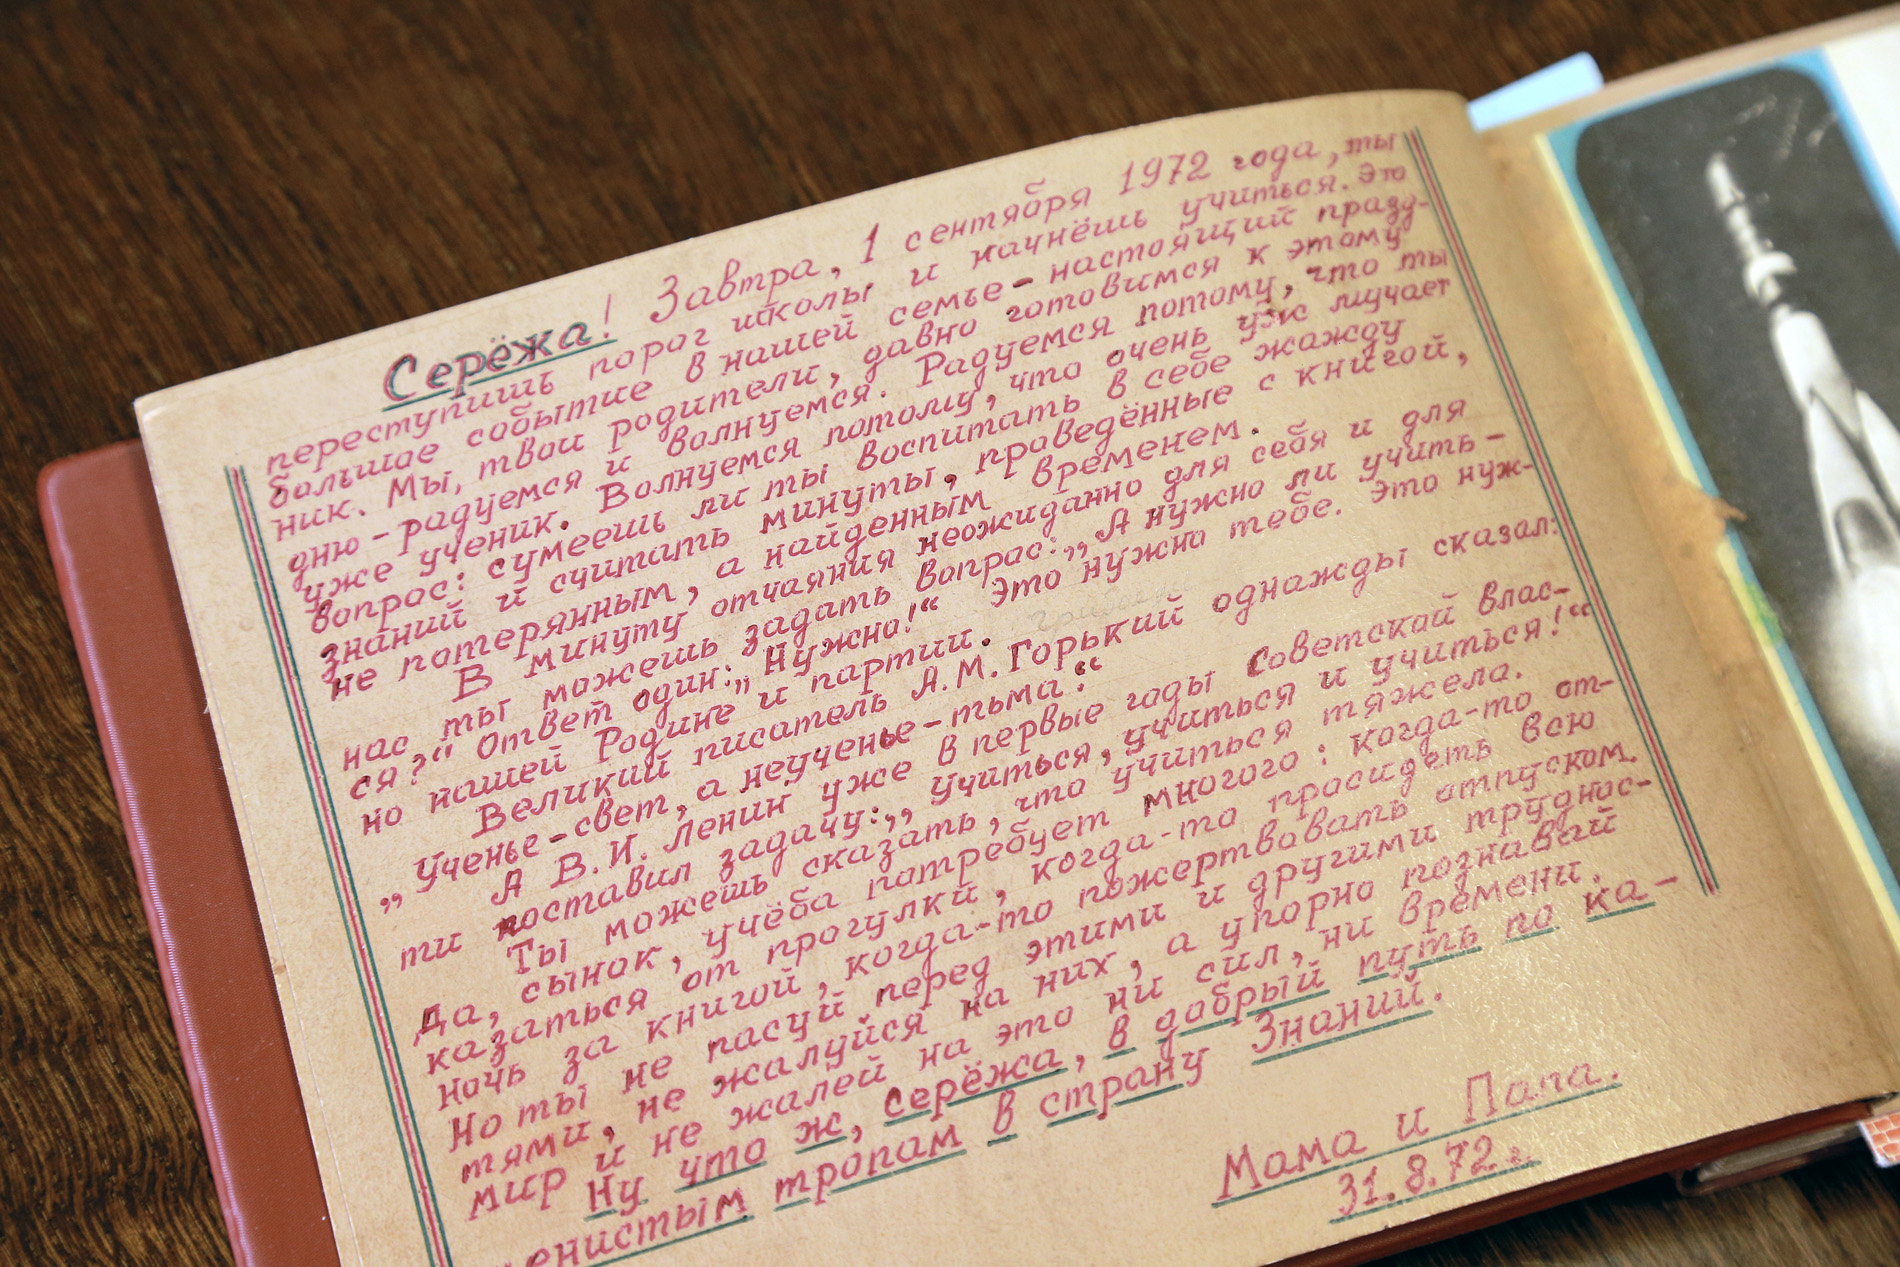 Серёжа! Завтра, 1 сентября 1972 года, ты
переступишь порог школы и начнёшь учиться. Это
большое событие в нашей семье – настоящий празд-
ник. Мы, твои родители, давно готовимся к этому
дню – радуемся и волнуемся. Радуемся потому, что ты
уже ученик. Волнуемся потому, что очень уж мучает
вопрос: сумеешь ли ты воспитать в себе жажду
знаний и считать минуты, проведённые с книгой,
не потерянным, а найденным временем.
В минуту отчаяния неожиданно для себя и для
нас ты можешь задать вопрос: „А нужно ли учить-
ся?“ Ответ один: „Нужно!“ Это нужно тебе. Это нуж-
но нашей Родине и партии.
Великий писатель А.М. Горький однажды сказал:
„Ученье – свет, а неученье – тьма!“
А В.И. Ленин уже в первые годы Советской влас-
ти поставил задачу: „учиться, учиться и учиться!“
Ты можешь сказать, что учиться тяжело.
Да, сынок, учёба потребует многого: когда-то от-
казаться от прогулки, когда-то просидеть всю
ночь за книгой, когда-то пожертвовать отпуском.
Но ты не пасуй перед этими и другими труднос-
тями, не жалуйся на них, а упорно познавай
мир и не жалей на это ни сил, ни времени.
Ну что ж, Серёжа, в добрый путь по ка-
менистым тропам в страну Знаний.
Мама и Папа.
31.8.72 г.